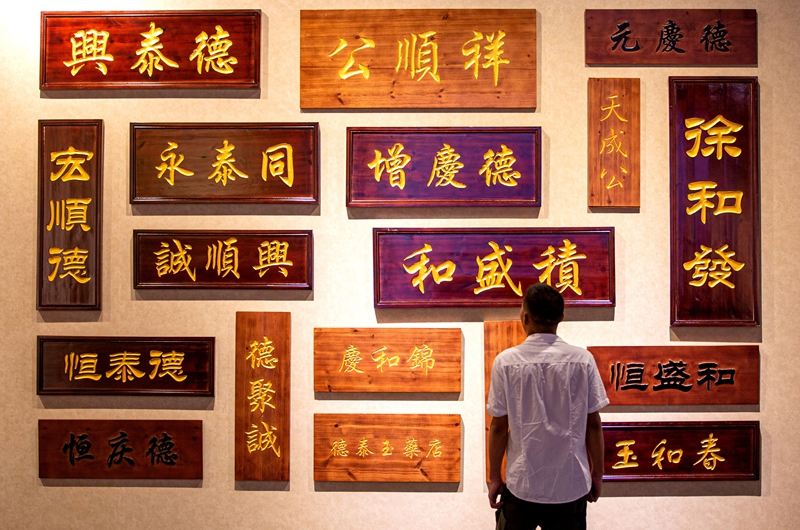 興泰德
公順祥
元慶德
宏順德
永泰同
增慶德
天成公
徐和發
誠順興
和盛積
恒泰德
德聚誠
慶和錦
恒盛和
恒庆德
德泰玉藥店
玉和春